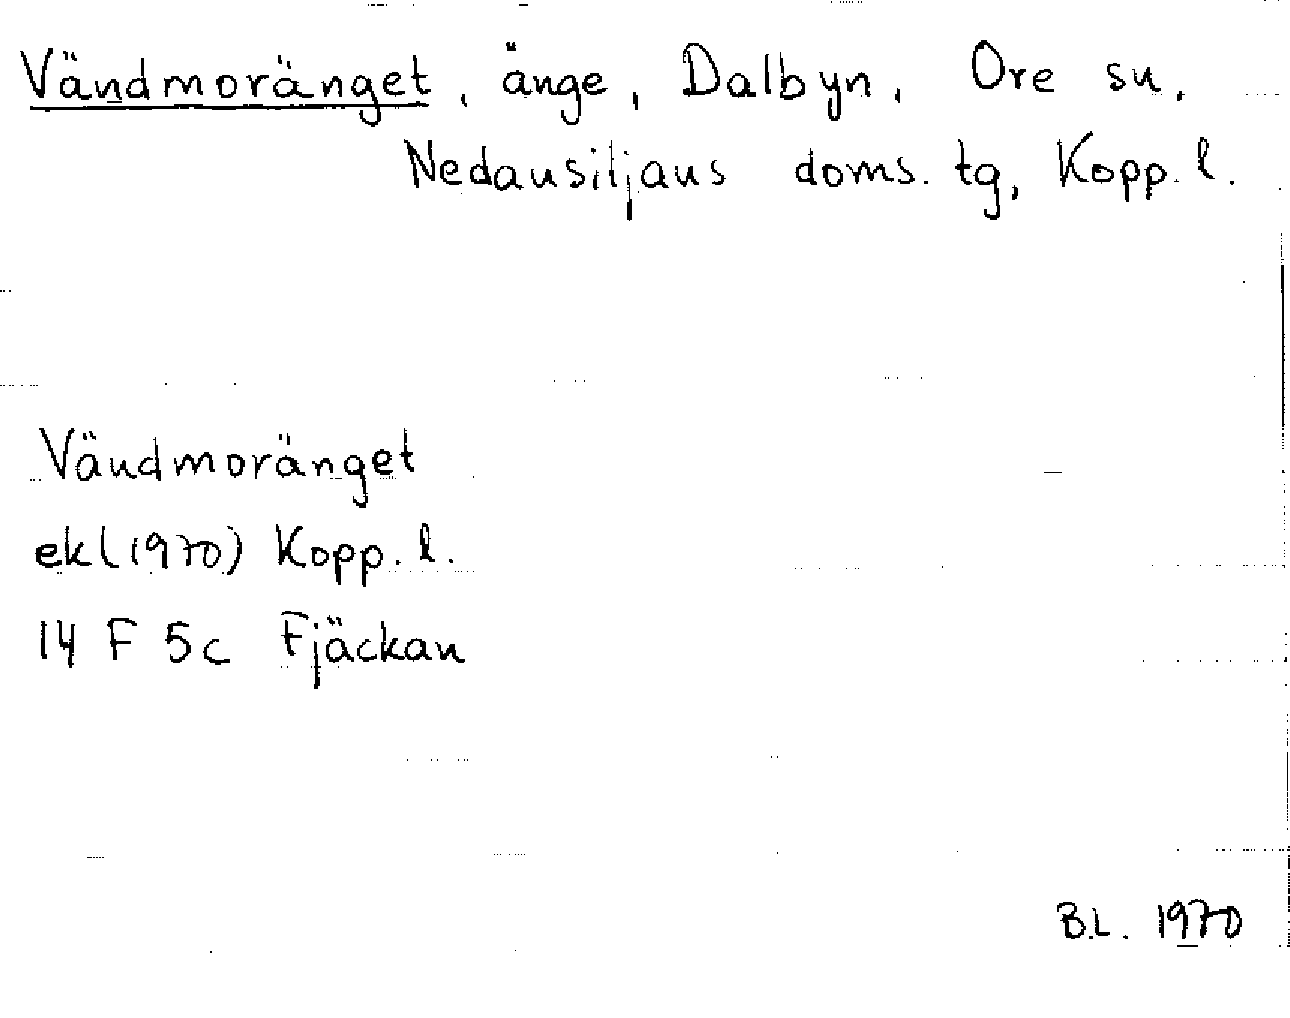 Vändmoränget, änge, Dalbyn, Ore sn,
Nedansiljans doms. tg, Kopp. l.
Vändmoränget
ek (1970) Kopp. l.
14 F 5c Fjäckan
B.L. 1970